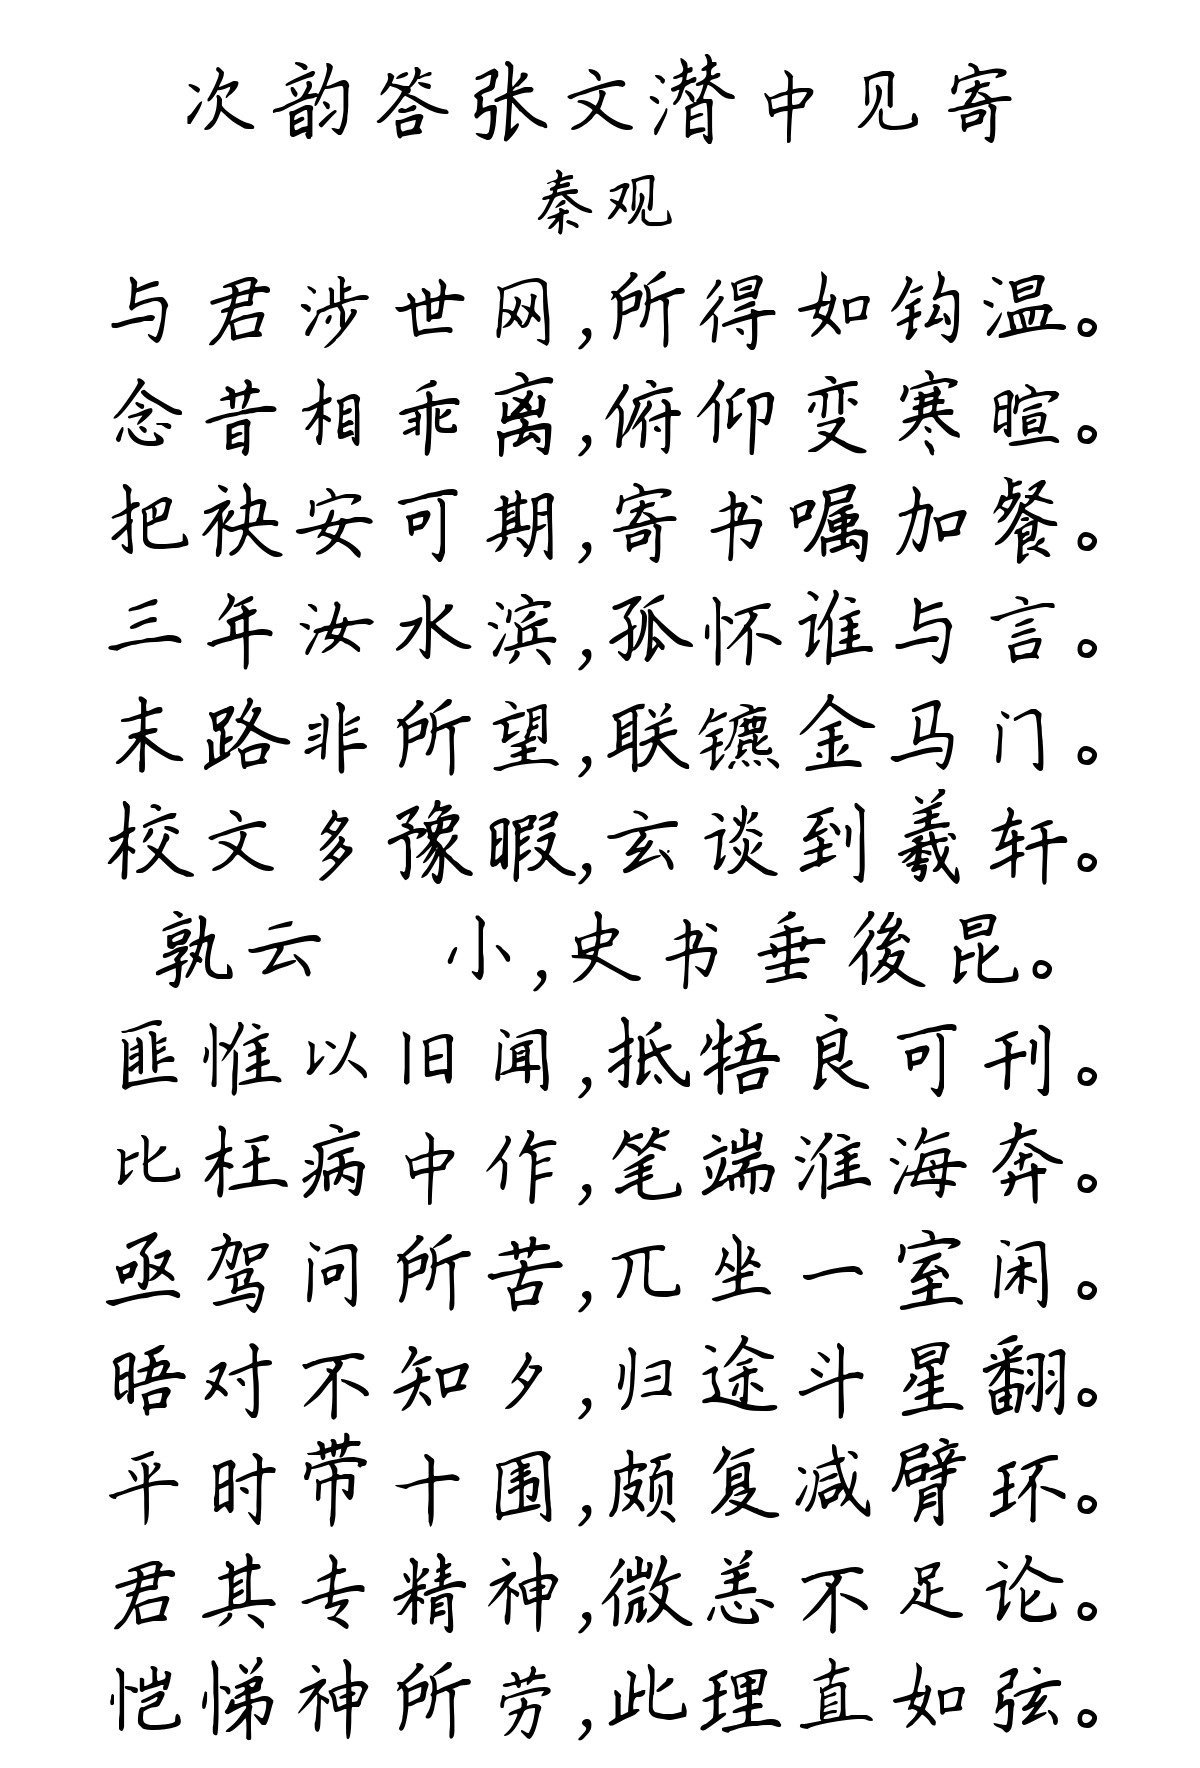 次韵答张文潜中见寄
秦观
与君涉世网,所得如钩温。
念昔相乖离,俯仰变寒暄。
把袂安可期,寄书嘱加餐。
三年汝水滨,孤怀谁与言。
末路非所望,联镳金马门。
校文多豫暇,玄谈到羲轩。
孰云 小,史书垂後昆。
匪惟以旧闻,抵牾良可刊。
比枉病中作,笔端淮海奔。
亟驾问所苦,兀坐一室闲。
晤对不知夕,归途斗星翻。
平时带十围,颇复减臂环。
君其专精神,微恙不足论。
恺悌神所劳,此理直如弦。